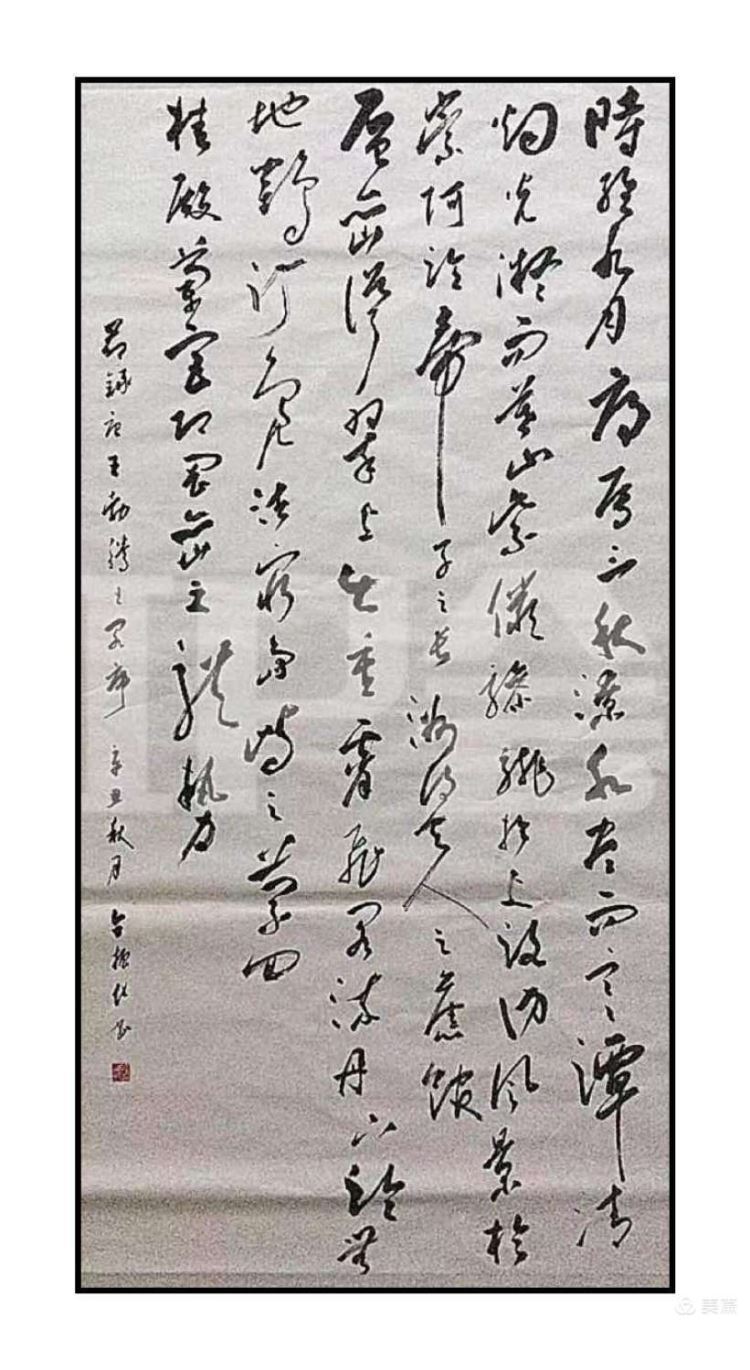 時維九月序屬三秋潦水盡而寒潭清
烟光凝而暮山紫儼驂騑於上路訪風景於
崇阿臨帝子之長洲得天人之舊館
層巒聳翠上出重霄飛閣流丹下臨無
地鶴汀鳧渚窮島嶼之縈回
桂殿蘭宮列岡巒之體勢
節錄唐王勃滕王閣序 辛丑秋月 書
美篇